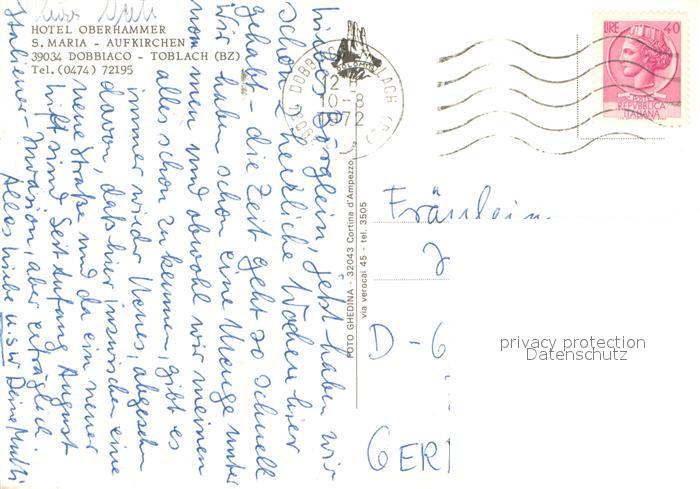 HOTEL OBERHAMMER
S. MARIA - AUFKIRCHEN
39034 DOBBIACO - TOBLACH (BZ)
Tel. (0474) 72195
39034 DOBBIACO TOBLACH
DOLOMITI
12
10-8
1972
LIRE 40
POSTE
REPUBBLICA
ITALIANA
jetzt haben wir
schon 2 herrliche Wochen hier
gehabt - die Zeit geht so schnell
Wir haben schon eine Menge unter
nommen und obwohl wir meinen
alles schon zu kennen, gibt es
immer wieder Neues, abgesehen
davon, daß hier inzwischen eine
neue Straße und da ein neuer
Lift sind. Seit Anfang August
Italiener-Invasion, aber erträglich.
Alles Liebe Deine Mutti
FOTO GHEDINA - 32043 Cortina d'Ampezzo
via verocai 45 - tel. 3505
Fräulein
D - 6
GER
privacy protection
Datenschutz